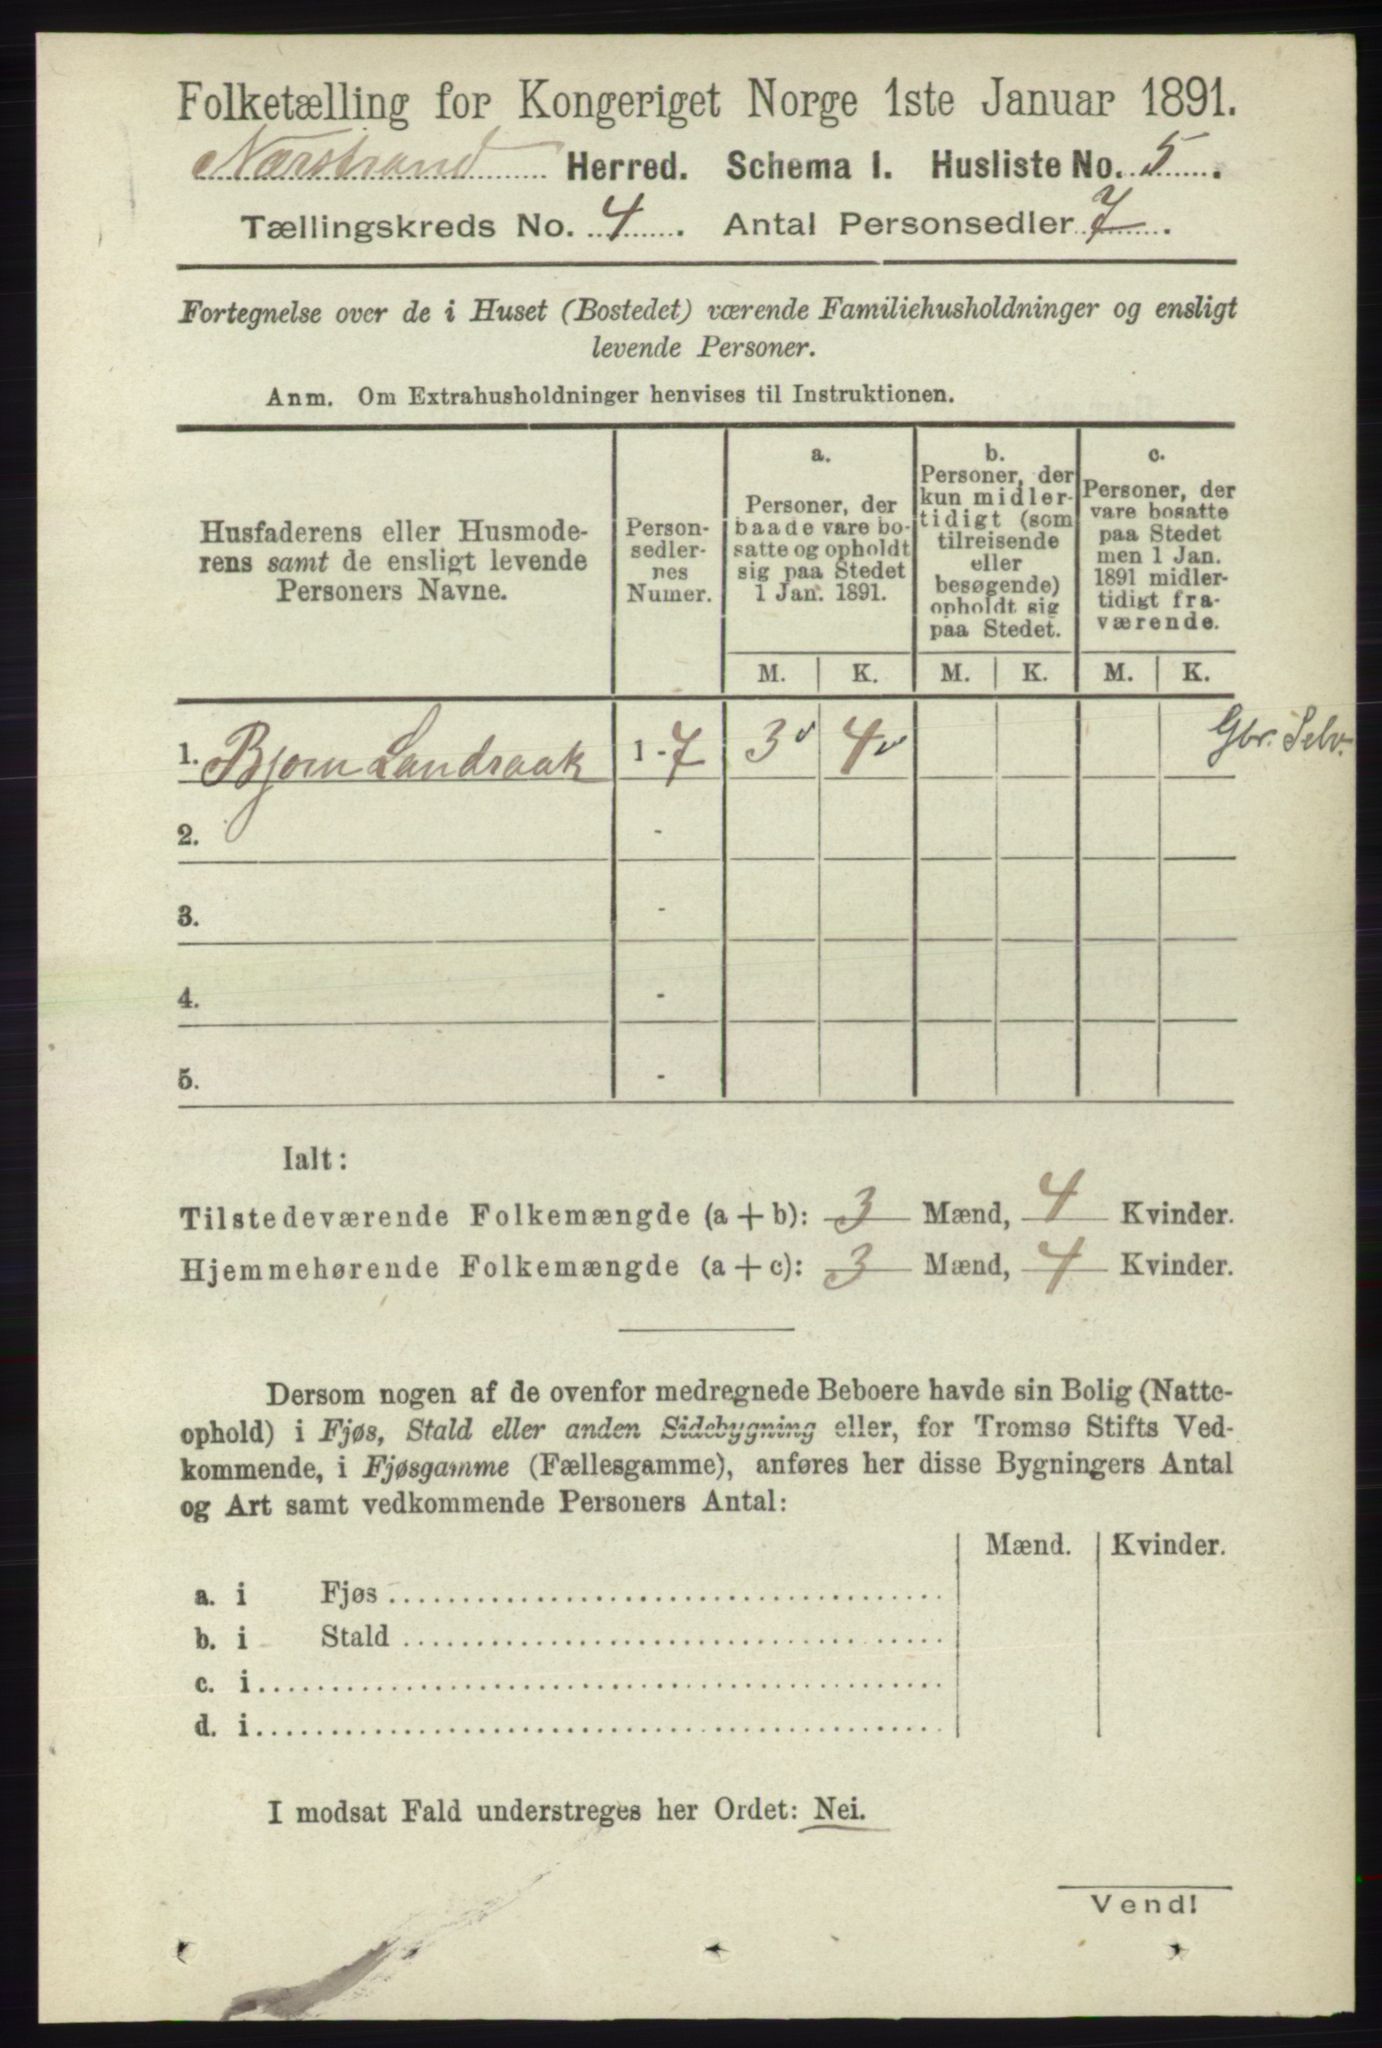 Folketælling for Kongeriget Norge 1ste Januar 1891.
Nærstrand Herred. Schema I. Husliste No. 5.
Tællingskreds No. 4. Antal Personsedler 7.
Fortegnelse over de i Huset (Bostedet) værende Familiehusholdninger og ensligt
levende Personer.
Anm. Om Extrahusholdninger henvises til Instruktionen.
Husfaderens eller Husmode-
rens samt de ensligt levende
Personers Navne.
Person-
sedler-
nes
Numer.
a.
Personer, der
baade vare bo-
satte og opholdt
sig paa Stedet
1 Jan. 1891.
b.
Personer, der
kun midler-
tidigt (som
tilreisende
eller
besøgende)
opholdt sig
paa Stedet.
c.
Personer, der
vare bosatte
paa Stedet
men 1 Jan.
1891 midler-
tidigt fra-
værende.
M. K. M. K. M. K.
1. Bjørn Landraak 1-7 3 4 Gbr. Selv.
2. -
3. -
4. -
5. -
Ialt:
Tilstedeværende Folkemængde (a + b): 3 Mænd, 4 Kvinder.
Hjemmehørende Folkemængde (a + c): 3 Mænd, 4 Kvinder.
Dersom nogen af de ovenfor medregnede Beboere havde sin Bolig (Natte-
ophold) i Fjøs, Stald eller anden Sidebygning eller, for Tromsø Stifts Ved-
kommende, i Fjøsgamme (Fællesgamme), anføres her disse Bygningers Antal
og Art samt vedkommende Personers Antal:
Mænd. Kvinder.
a. i Fjøs
b. i Stald
c. i
d. i
I modsat Fald understreges her Ordet: Nei.
Vend!